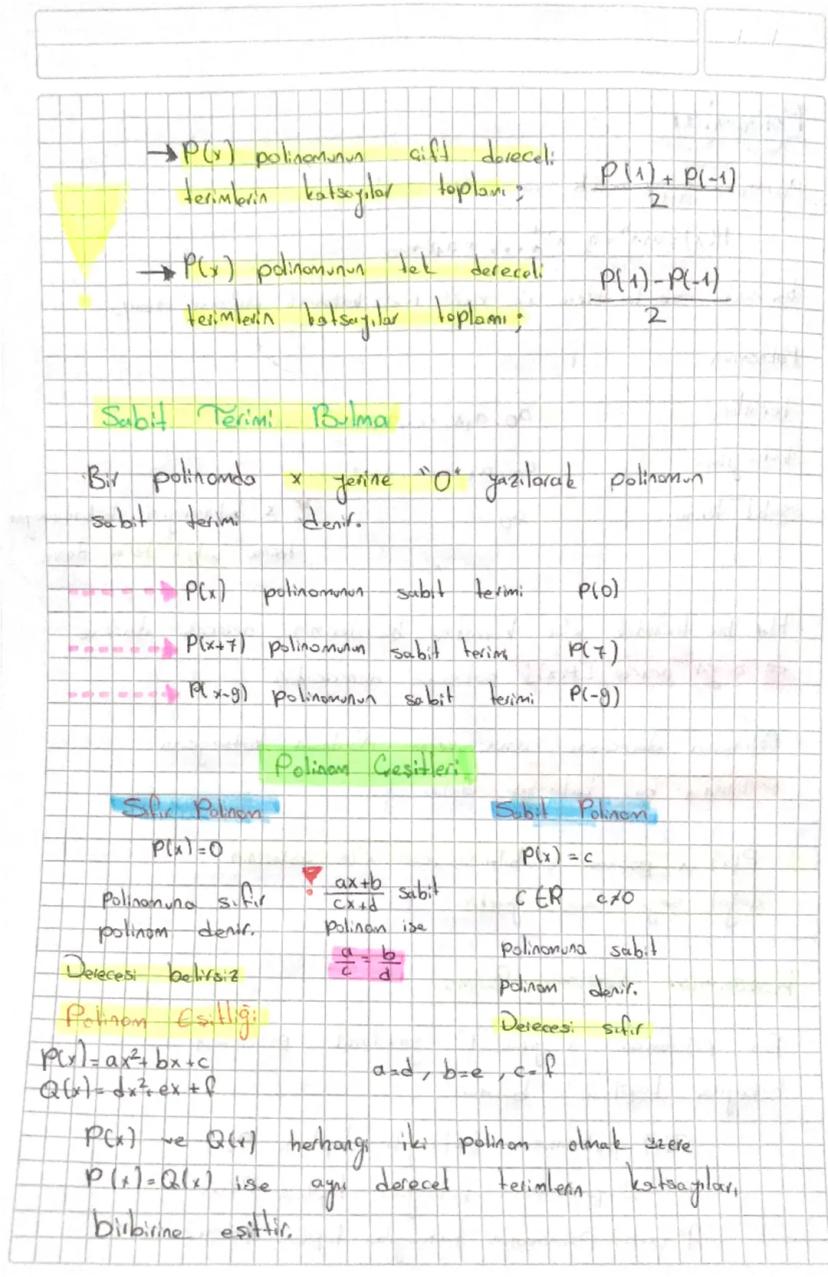 → P(x) polinomunun çift dereceli
terimlerin katsayılar toplamı; P(1) + P(-1) / 2
→ P(x) polinomunun tek dereceli
terimlerin katsayılar toplamı; P(1) - P(-1) / 2
Sabit Terimi Bulma
Bir polinomda x yerine "0" yazılarak polinomun
sabit terimi denir.
P(x) polinomunun sabit terimi P(0)
P(x+7) polinomunun sabit terim P(7)
P(x-9) polinomunun sabit terimi P(-9)
Polinom Çeşitleri
Sıfır Polinom
P(x)=0
Polinomuna sıfır
polinom denir.
Derecesi belirsiz
! ax+b / cx+d sabit
polinom ise
a/c = b/d
Sabit Polinom
P(x) = c
C ∈ R c≠0
polinomuna sabit
polinom denir.
Derecesi sıfır
Polinom Eşitliği
P(x)=ax²+bx+c
Q(x)=dx²+ex+f
a=d, b=e, c=f
P(x) ve Q(x) herhangi iki polinom olmak üzere
P(x)=Q(x) ise aynı derecel terimlerin katsayıları
birbirine eşittir.